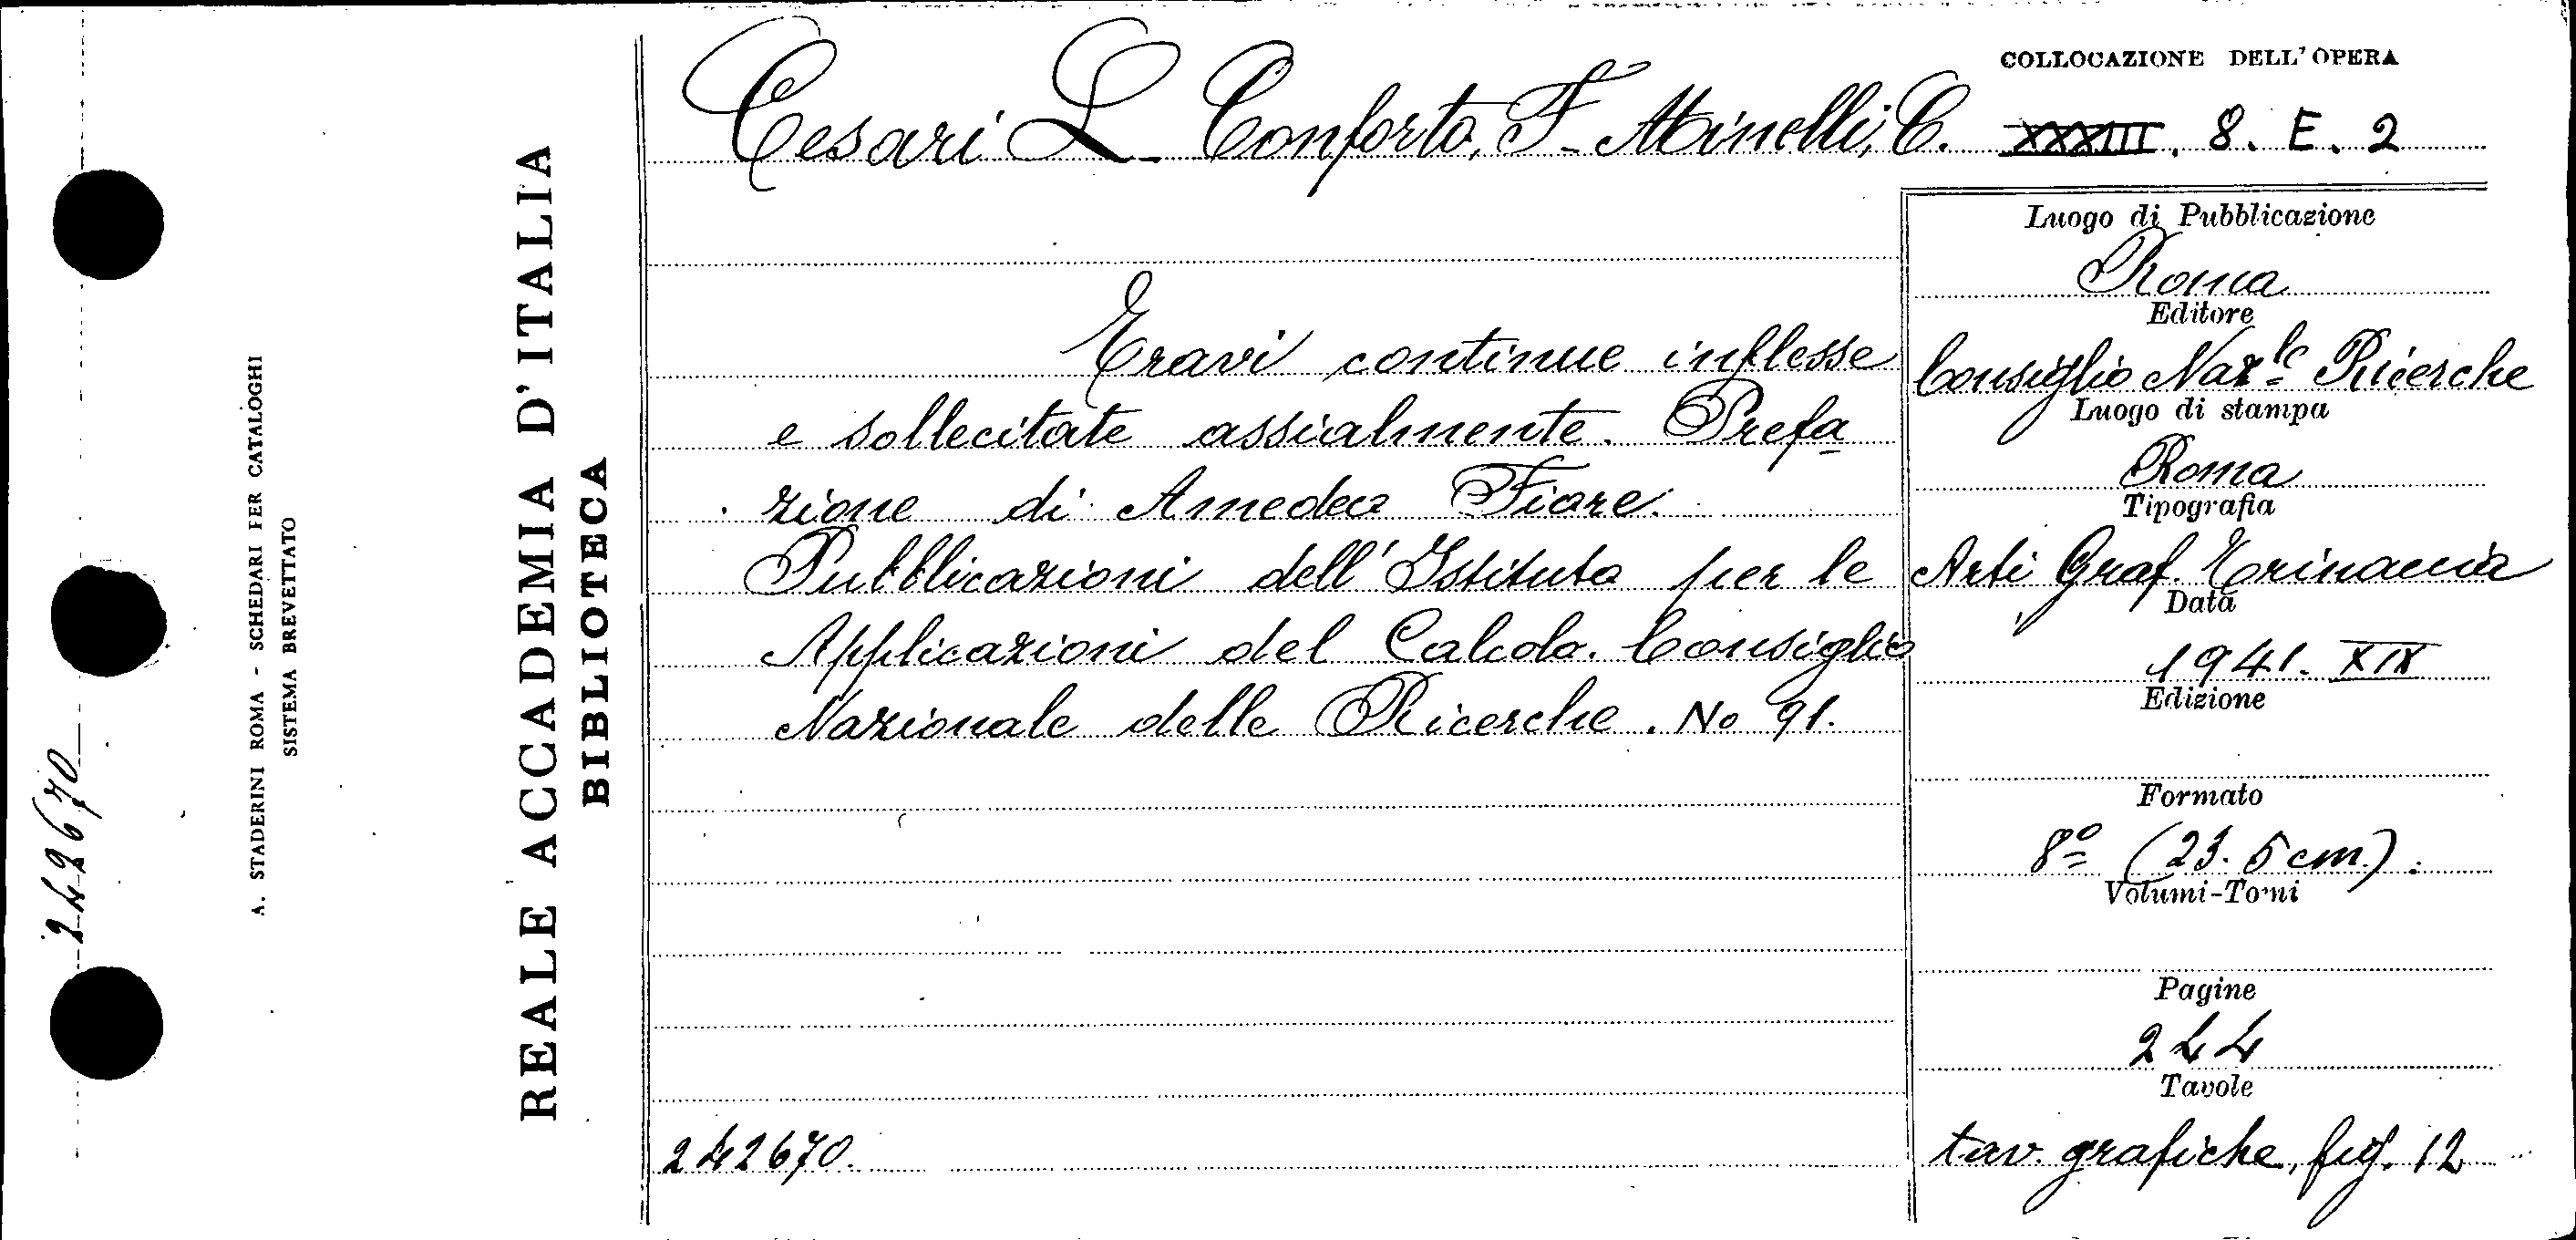 COLLOCAZIONE DELL'OPERA
Cesari L. Conforto, F. Minelli, C. XXXIII. 8. E. 2
Travi continue inflesse
e sollecitate assialmente. Prefa
zione di Amedeo Fiore.
Pubblicazioni dell'Istituto per le
Applicazioni del Calcolo. Consiglio
Nazionale delle Ricerche. No 91.
242670.
Luogo di Pubblicazione
Roma
Editore
Consiglio Naz.le Ricerche
Luogo di stampa
Roma
Tipografia
Arti Graf. Trinacria
Data
1941. XIX
Edizione
Formato
8º (23.5 cm.).
Volumi-Tomi
Pagine
244
Tavole
tav. grafiche, fig. 12
REALE ACCADEMIA D'ITALIA
BIBLIOTECA
A. STADERINI ROMA - SCHEDARI PER CATALOGHI
SISTEMA BREVETTATO
242670